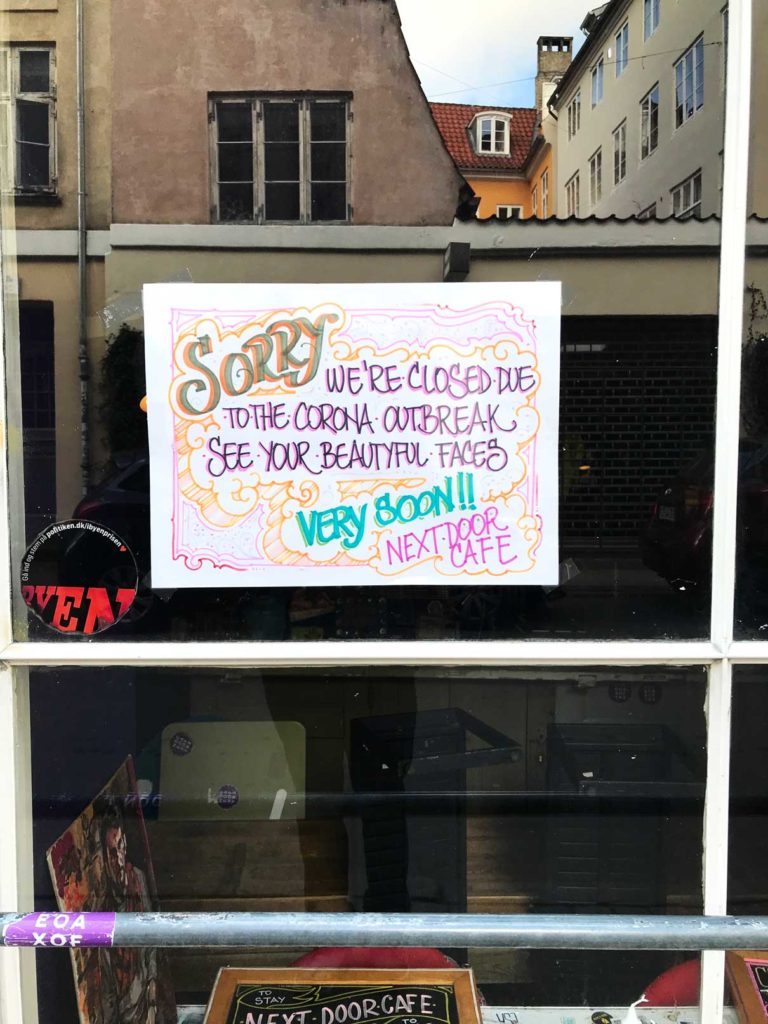 SORRY WE'RE·CLOSED·DUE
TO·THE·CORONA·OUTBREAK
SEE·YOUR·BEAUTYFUL·FACES
VERY SOON!!
NEXT·DOOR
CAFE
Gå ind og stem på politiken.dk/ibyenprisen
BYEN
EQA
XOF
TO
STAY
NEXT·DOOR·CAFE
TO